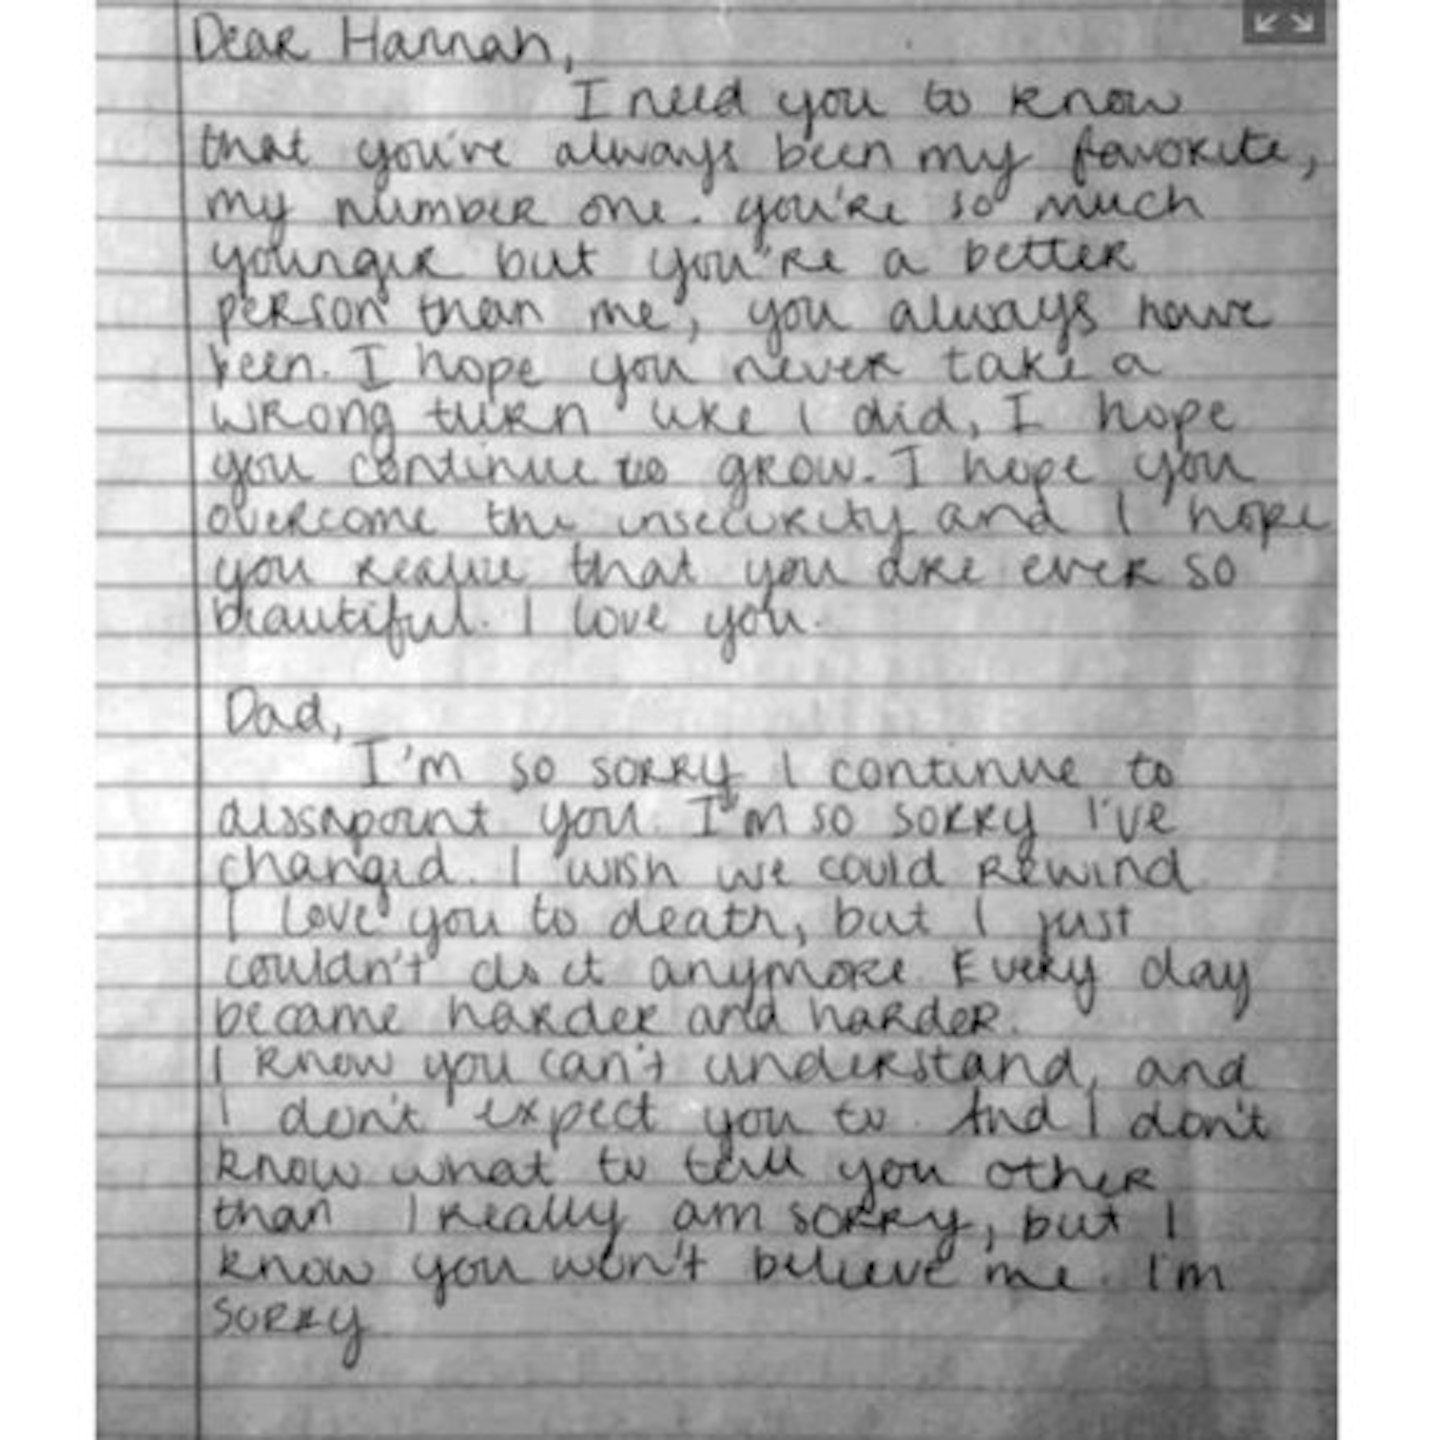 Dear Hannah,
I need you to know
that you've always been my favorite,
my number one. you're so much
younger but you're a better
person than me, you always have
been. I hope you never take a
wrong turn like I did, I hope
you continue to grow. I hope you
overcome the insecurity and I hope
you realize that you are ever so
beautiful. I love you.
Dad,
I'm so sorry I continue to
dissapoint you. I'm so sorry I've
changed. I wish we could rewind
I love you to death, but I just
couldn't do it anymore. Every day
became harder and harder.
I know you can't understand, and
I don't expect you to. And I don't
know what to tell you other
than I really am sorry, but I
know you won't believe me. I'm
sorry